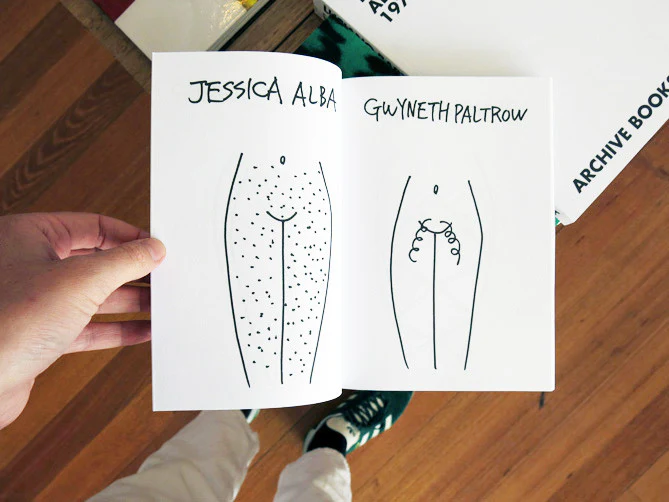 JESSICA ALBA
GWYNETH PALTROW
ARCHIVE BOOKS